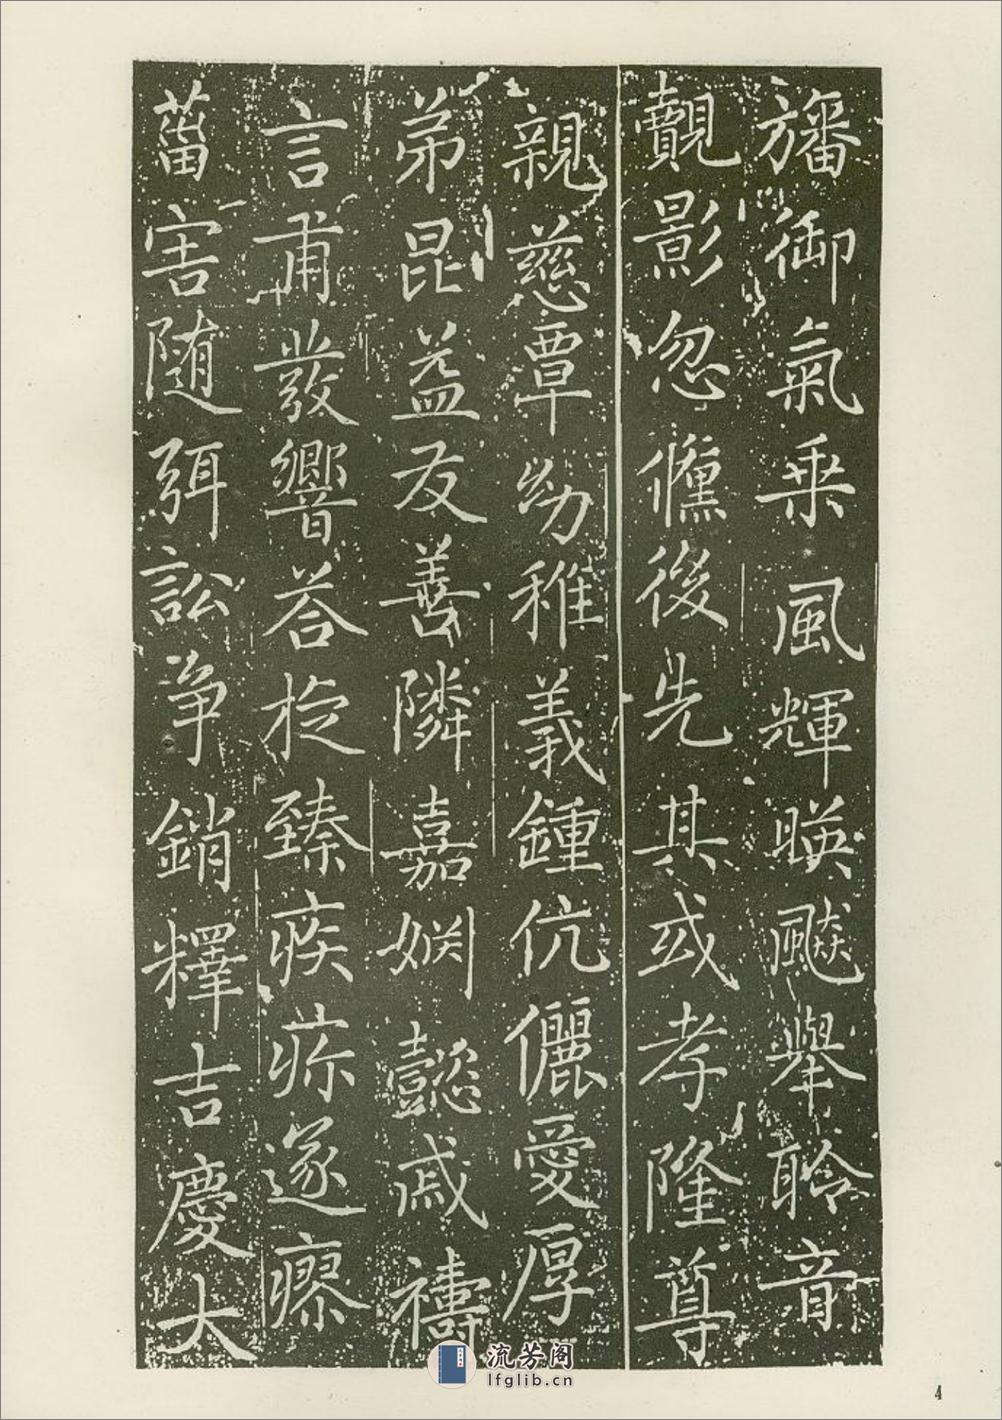 旛御氣乗風輝暎飈舉聆音
覿影忽儵後先其或孝隆尊
親慈覃幼稚義鍾伉儷愛厚
弟昆益友善隣嘉姻懿戚禱
言甫發響荅旋臻疾疹遂瘳
菑害随弭訟争銷釋吉慶大
流芳阁
lfglib.cn
4